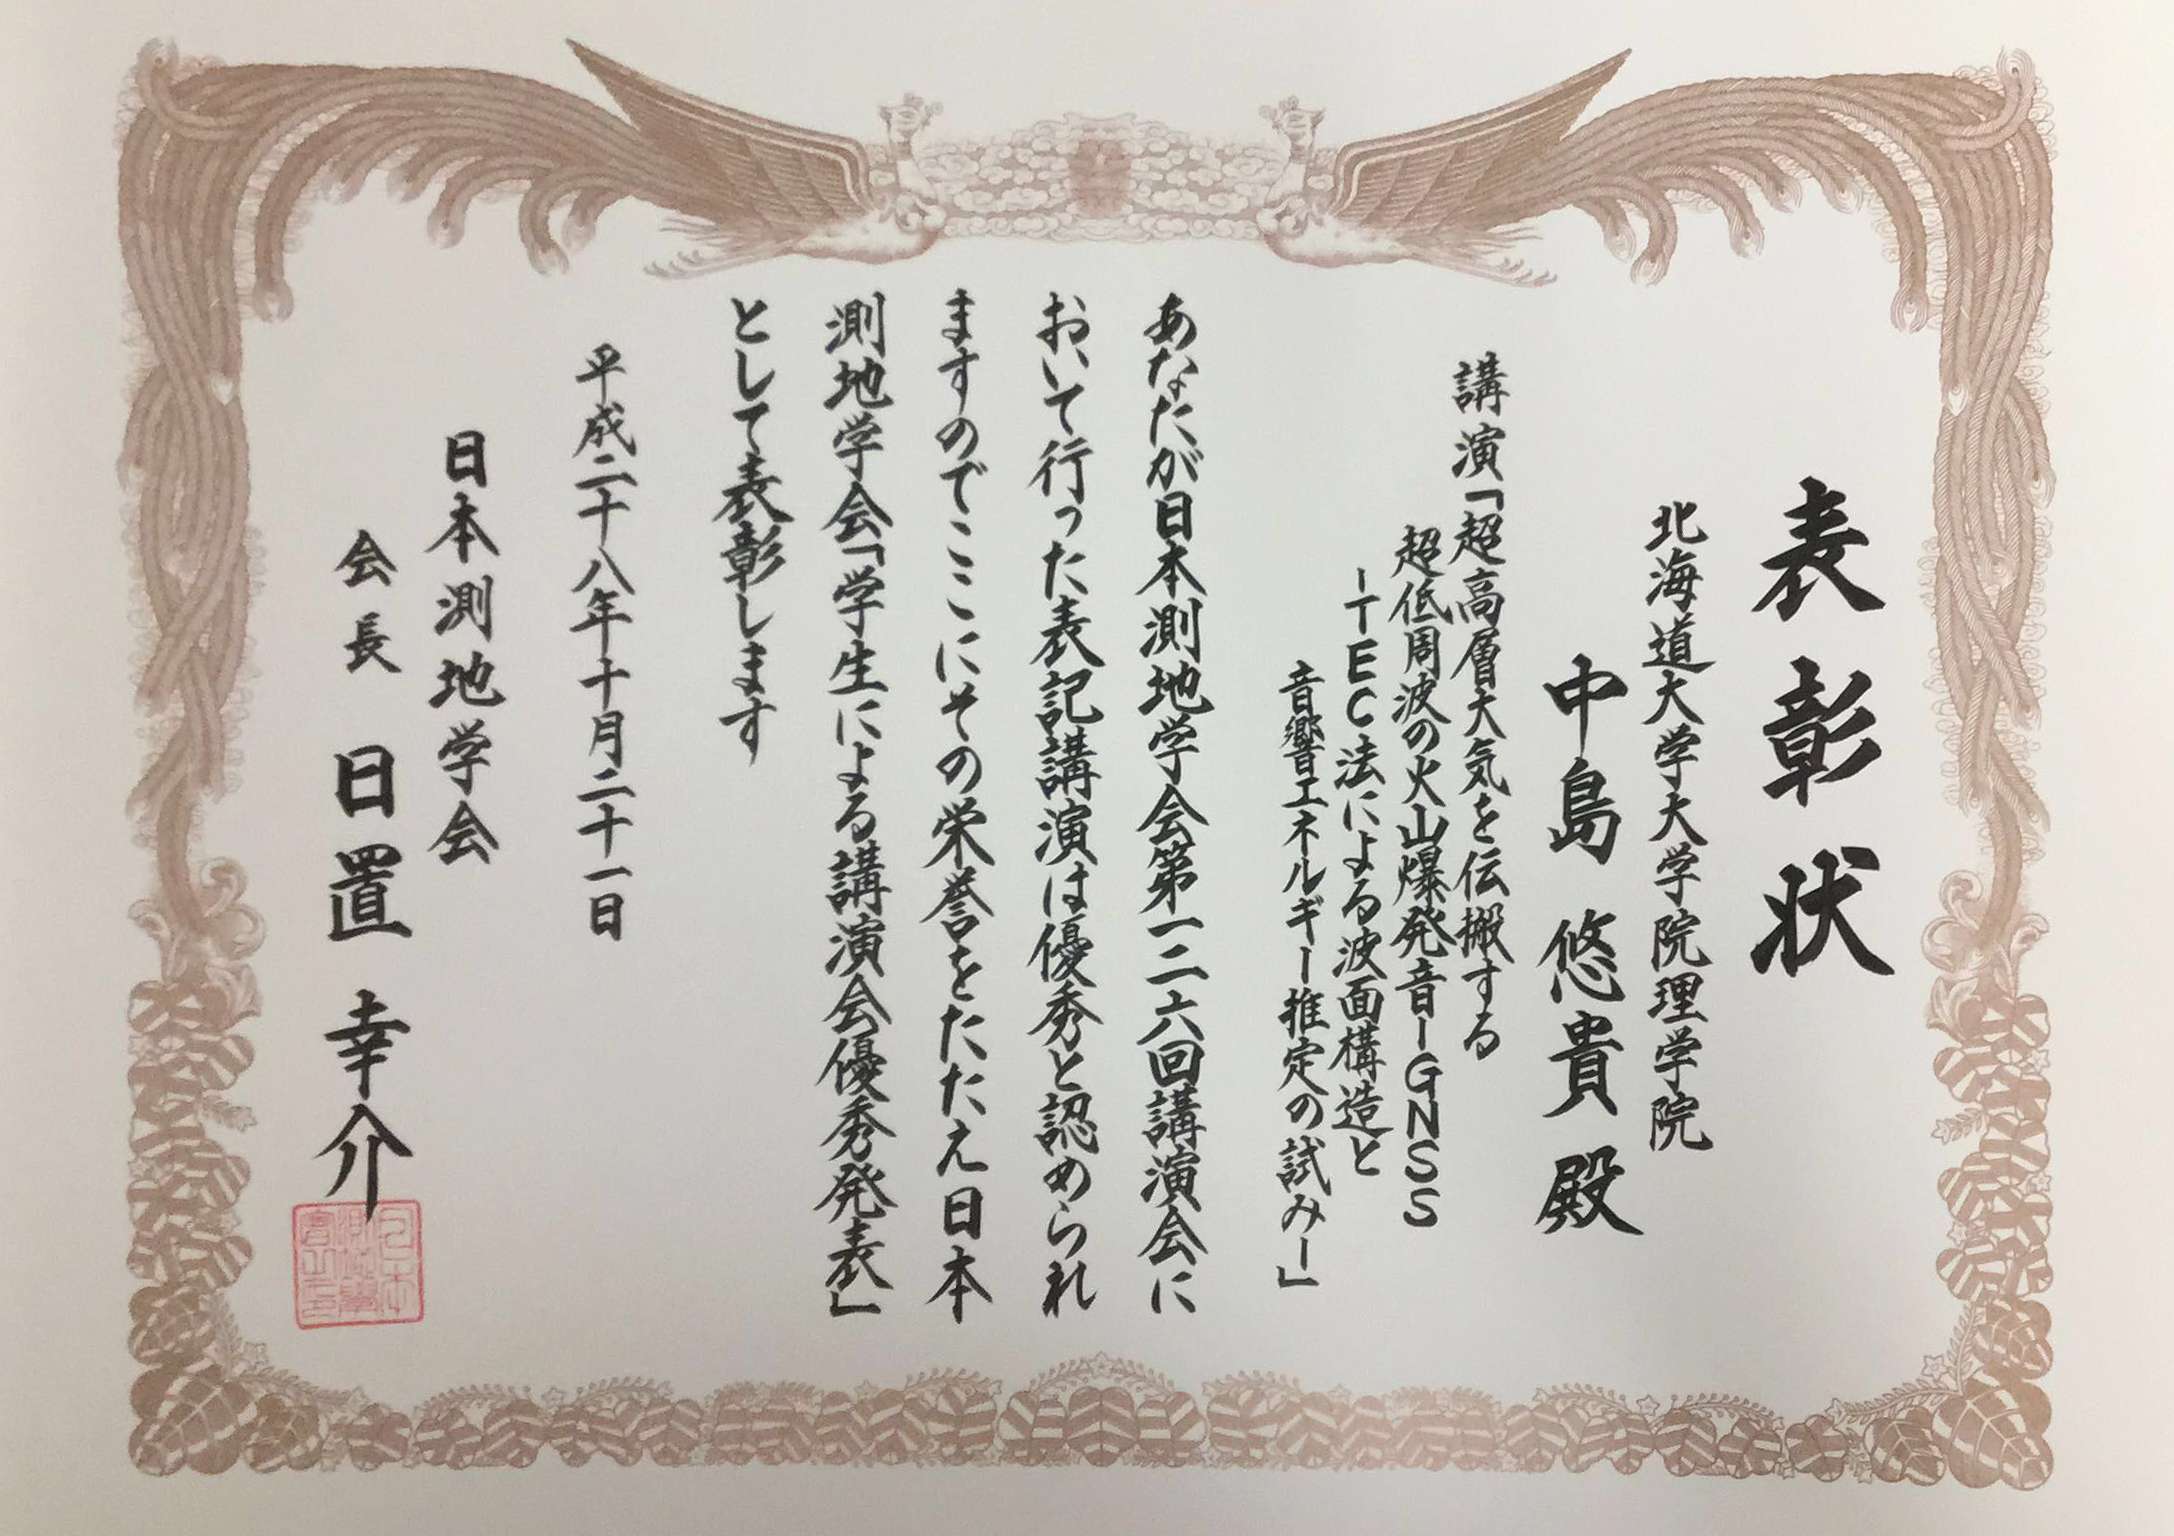 表彰状
北海道大学大学院理学院
中島悠貴殿
講演「超高層大気を伝搬する
超低周波の火山爆発音ーGNSS
ーTEC法による波面構造と
音響エネルギー推定の試みー」
あなたが日本測地学会第一二六回講演会に
おいて行った表記講演は優秀と認められ
ますのでここにその栄誉をたたえ日本
測地学会「学生による講演会優秀発表」
として表彰します
平成二十八年十月二十一日
日本測地学会
会長 日置幸介